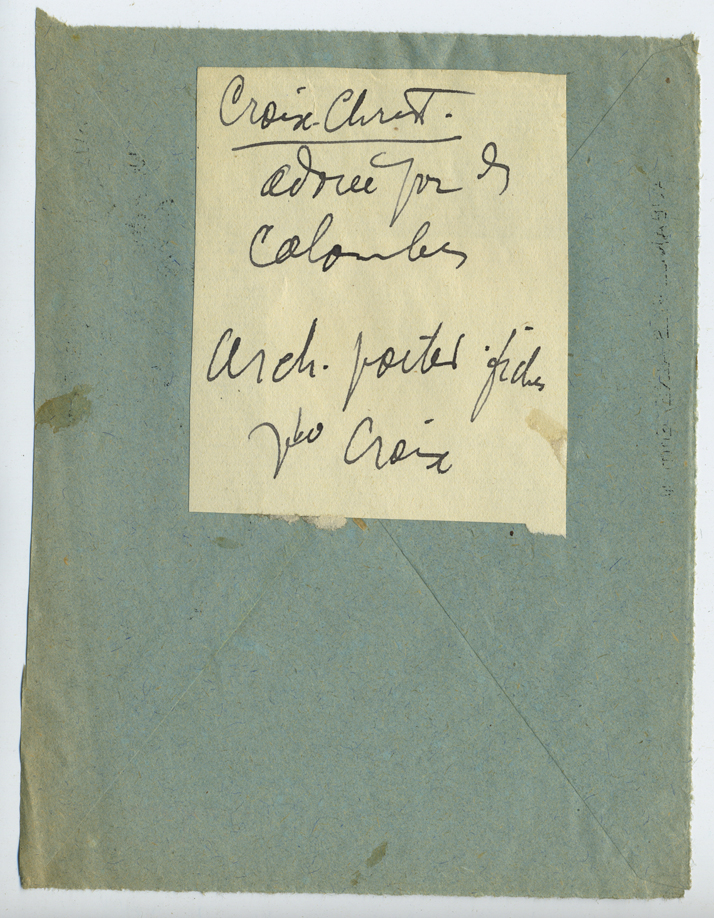 Croix-Christ.
adorée par des
Colombes
Arch. porter fiches
Croix